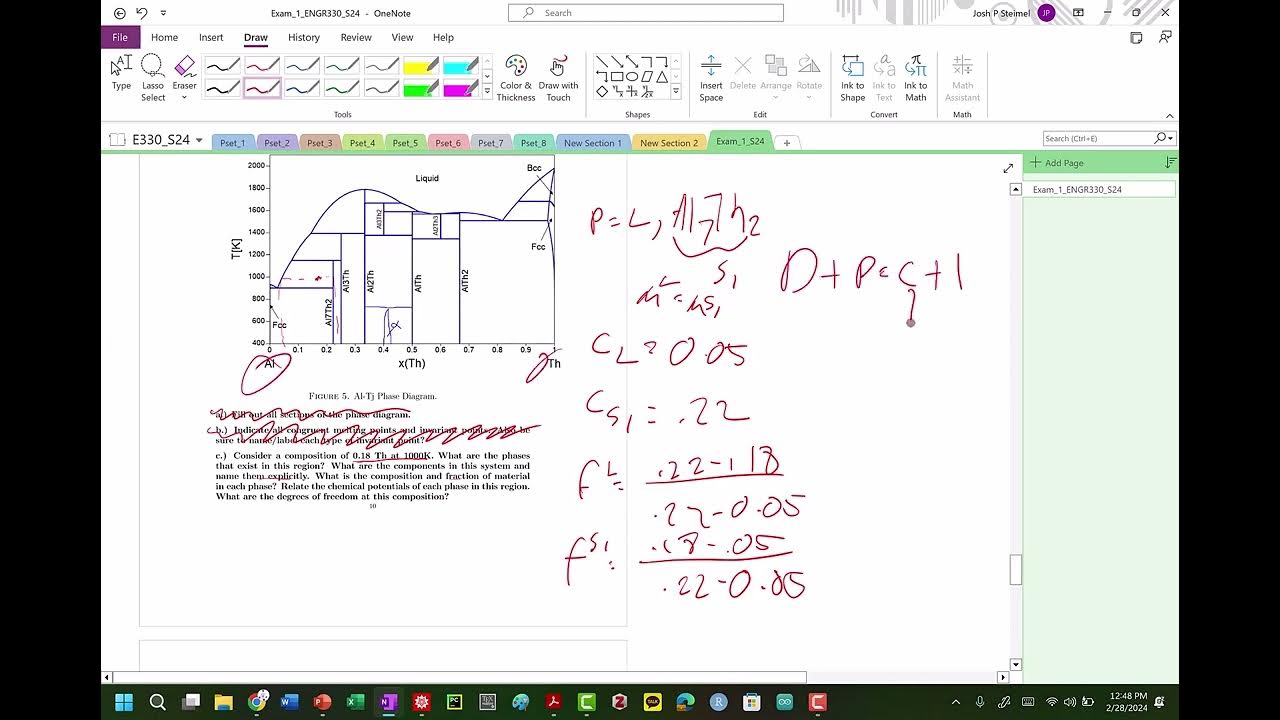 Exam_1_ENGR330_S24 - OneNote
Search
Josh P Steimel
JP
File
Home
Insert
Draw
History
Review
View
Help
Type
Lasso Select
Eraser
Color & Thickness
Draw with Touch
Insert Space
Delete
Arrange
Rotate
Ink to Shape
Ink to Text
Ink to Math
Math Assistant
Tools
Shapes
Edit
Convert
Math
E330_S24
Pset_1
Pset_2
Pset_3
Pset_4
Pset_5
Pset_6
Pset_7
Pset_8
New Section 1
New Section 2
Exam_1_S24
Search (Ctrl+E)
Add Page
Exam_1_ENGR330_S24
2000
1800
1600
1400
1200
1000
800
600
400
T[K]
Liquid
Bcc
Fcc
Fcc
Al7Th2
Al3Th
Al2Th
Al3Th2
AlTh
Al2Th3
AlTh2
α
0 0.1 0.2 0.3 0.4 0.5 0.6 0.7 0.8 0.9 1
Al
x(Th)
Th
FIGURE 5. Al-Tj Phase Diagram.
a) Fill out all sections of the phase diagram.
b.) Indicate all congruent melting points and invariant points. Also be
sure to name/label each type of invariant point?
c.) Consider a composition of 0.18 Th at 1000K. What are the phases
that exist in this region? What are the components in this system and
name them explicitly. What is the composition and fraction of material
in each phase? Relate the chemical potentials of each phase in this region.
What are the degrees of freedom at this composition?
10
P = L, Al7Th2
S1
μ^L = μ^S1
D + P = C + 1
C_L = 0.05
C_S1 = .22
f^L = .22-.18
.22-0.05
f^S1 = .18-.05
.22-0.05
12:48 PM
2/28/2024